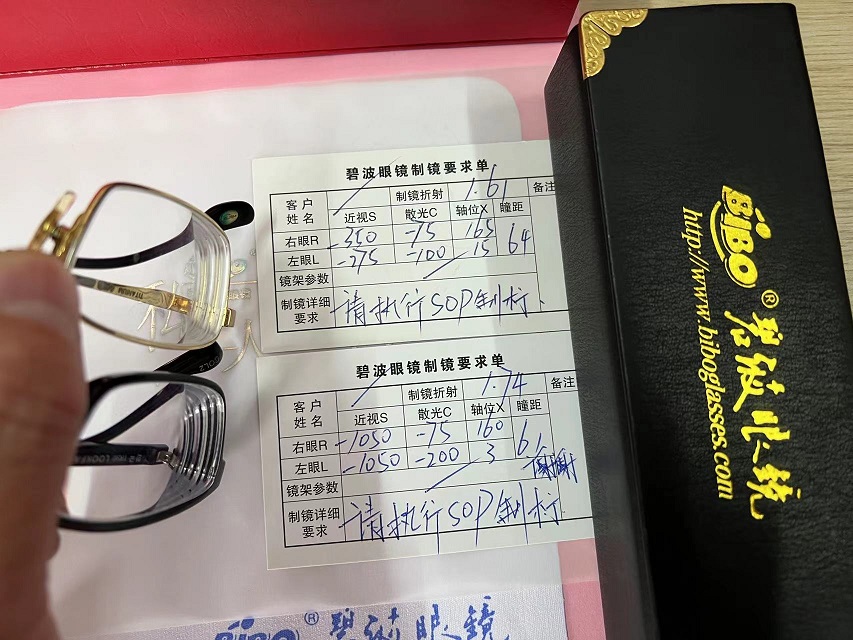 碧波眼镜制镜要求单
客户姓名 制镜折射 1.61 备注
近视S 散光C 轴位X 瞳距
右眼R -350 -75 165 64
左眼L -275 -100 15
镜架参数
制镜详细要求 请执行SOP制标
碧波眼镜制镜要求单
客户姓名 制镜折射 1.74 备注
近视S 散光C 轴位X 瞳距
右眼R -1050 -75 160
左眼L -1050 -200 3
镜架参数
制镜详细要求 请执行SOP制标
BiBO® 碧波眼镜
http://www.biboglasses.com
BiBO® 碧波眼镜